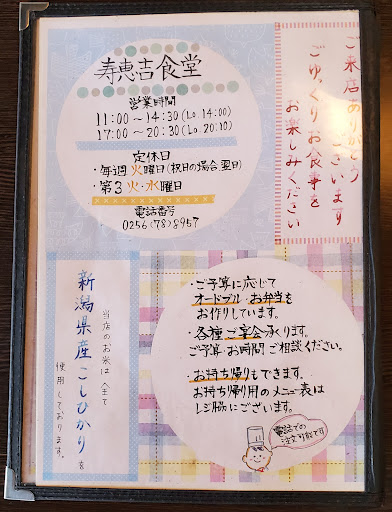 寿恵吉食堂
営業時間
11:00〜14:30(Lo.14:00)
17:00〜20:30(Lo.20:10)
定休日
・毎週火曜日(祝日の場合、翌日)
・第3火・水曜日
電話番号
0256(78)8957
ご来店ありがとう
ございます
ごゆっくりお食事を
お楽しみください
当店のお米は全て
新潟県産こしひかりを
使用しております。
・ご予算に応じて
オードブル・お弁当を
お作りしています。
・各種ご宴会承ります。
ご予算・お時間ご相談ください。
・お持ち帰りもできます。
お持ち帰り用のメニュー表は
レジ脇にございます。
電話での
注文可能です